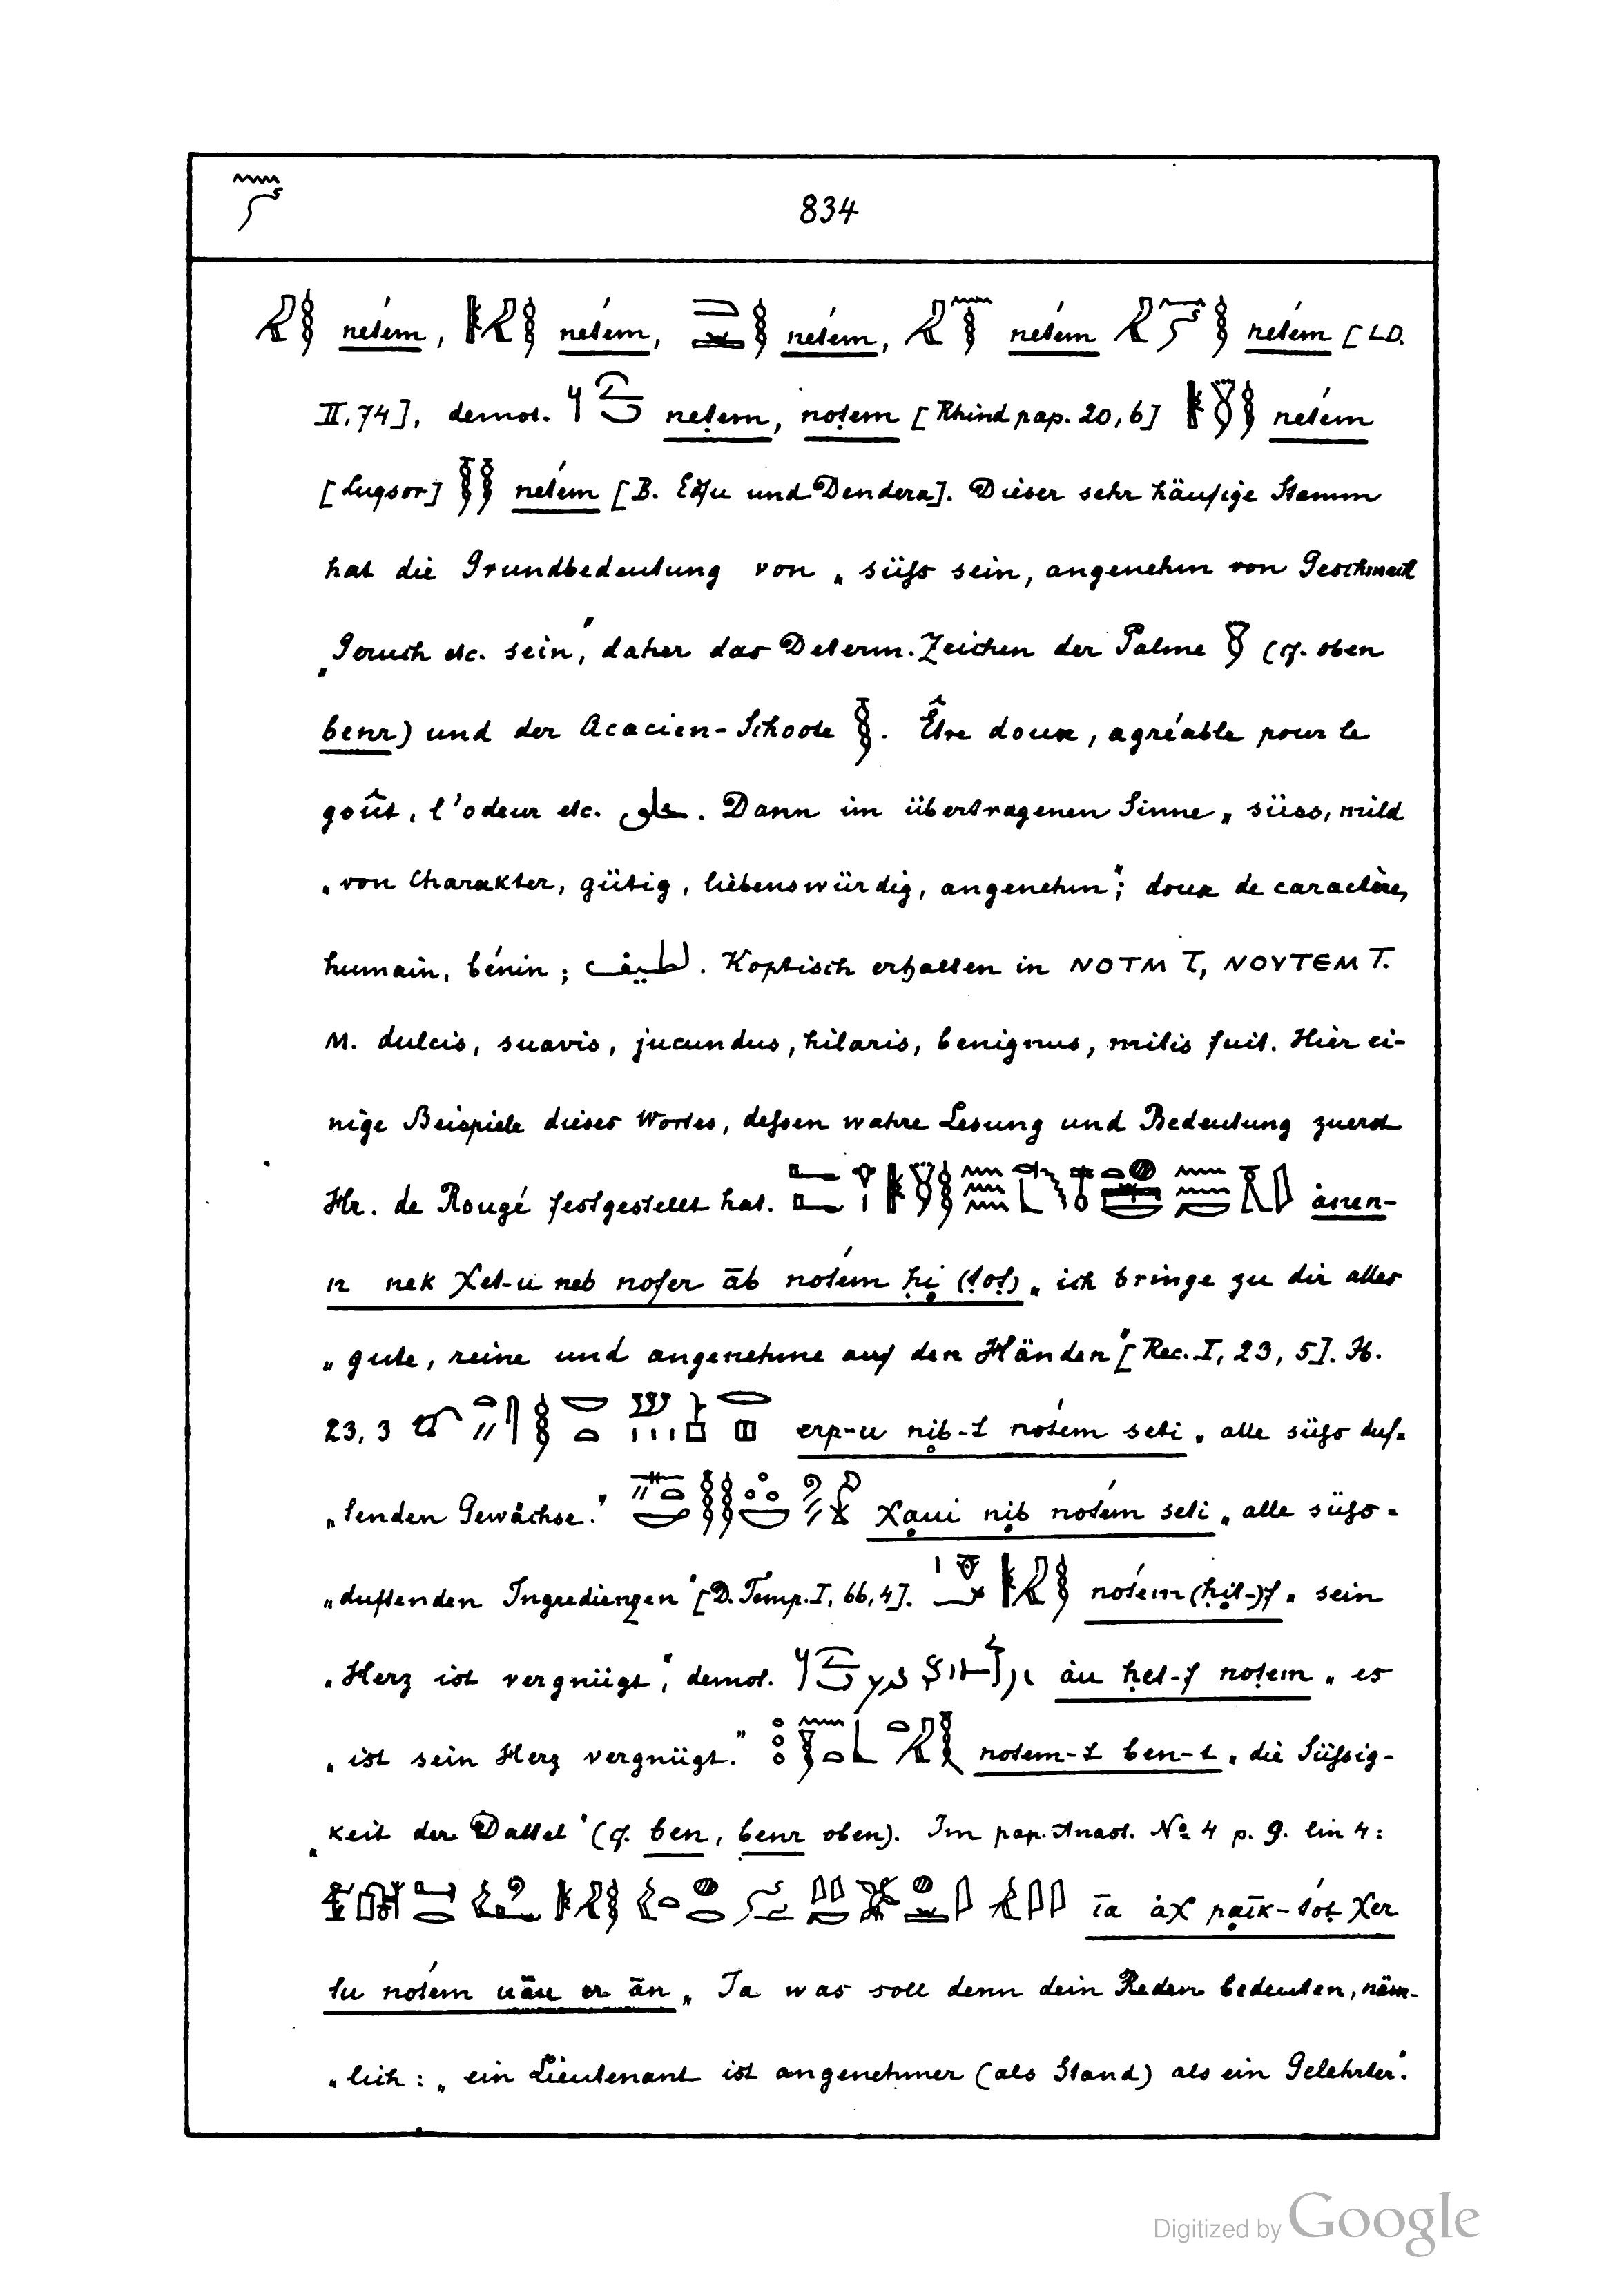 834
neťem, neťem, neťem, neťem neťem [LD.
II, 74], demot. neṭem, noṭem [Rhind pap. 20, 6] neťem
[Luqsor] neťem [B. Edfu und Dendera]. Dieser sehr häufige Stamm
hat die Grundbedeutung von „süſs sein, angenehm von Geschmack
„Geruch etc. sein," daher das Determ. Zeichen der Palme (cf. oben
benr) und der Acacien-Schoote . Être doux, agréable pour le
goût, l'odeur etc. حلو. Dann im übertragenen Sinne „süss, mild
„von Charakter, gütig, liebenswürdig, angenehm"; doux de caractère,
humain, bénin; لطيف. Koptisch erhalten in ⲛⲟⲧⲙ T, ⲛⲟⲩⲧⲉⲙ T.
M. dulcis, suavis, jucundus, hilaris, benignus, mitis fuit. Hier ei-
nige Beispiele dieses Wortes, deſsen wahre Lesung und Bedeutung zuerst
Hr. de Rougé festgestellt hat. ànen-
n nek χet-u neb nofer āb noťem ḥi (ṭoṭ) „ich bringe zu dir alles
„gute, reine und angenehme auf den Händen" [Rec. I, 23, 5]. Ib.
23, 3 erp-u nib-t noťem seti „alle süſs duf-
„tenden Gewächse." χaui nib noťem seti „alle süſs-
„duftenden Ingredienzen" [D. Temp. I, 66, 4]. noťem (ḥit-)f „sein
„Herz ist vergnügt," demot. àu ḥet-f noṭem „es
„ist sein Herz vergnügt." notem-t ben-t „die Süſsig-
„keit der Dattel" (cf. ben, benr oben). Im pap. Anast. No 4 p. 9. lin 4:
īa àχ paīk-ťoṭ χer
tu noťem uāu er ān „Ja was soll denn dein Reden bedeuten, näm-
„lich: „ein Lieutenant ist angenehmer (als Stand) als ein Gelehrter."
Digitized by Google